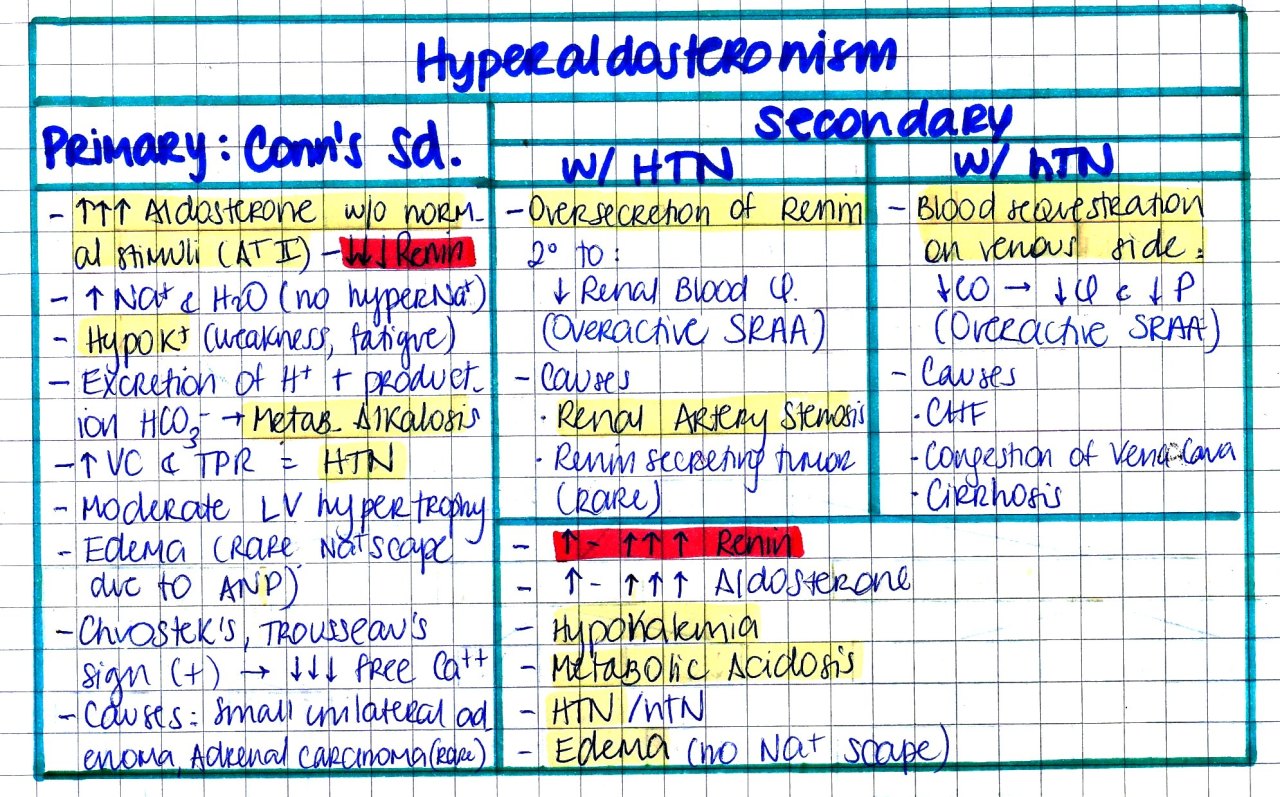 Hyperaldosteronism
Primary: Conn's Sd.
- ↑↑↑ Aldosterone w/o norm-
al stimuli (AT II) - ↓↓↓ Renin
- ↑ Na+ & H2O (no hyperNa+)
- HypoK+ (weakness, fatigue)
- Excretion of H+ + product-
ion HCO3- → Metab. Alkalosis
- ↑ VC & TPR = HTN
- Moderate LV hypertrophy
- Edema (Rare Na+ scape
due to ANP)
- Chvostek's, Trousseau's
sign (+) → ↓↓↓ free Ca++
- Causes: small unilateral ad
enoma, Adrenal carcinoma (rare)
Secondary
w/ HTN
- Oversecretion of Renin
2° to:
↓ Renal Blood φ.
(Overactive SRAA)
- Causes
· Renal Artery Stenosis
· Renin secreting tumor
(rare)
w/ hTN
- Blood sequestration
on venous side:
↓CO → ↓φ & ↓P
(Overactive SRAA)
- Causes
· CHF
· Congestion of Vena Cava
· Cirrhosis
- ↑ - ↑↑↑ Renin
- ↑ - ↑↑↑ Aldosterone
- Hypokalemia
- Metabolic Acidosis
- HTN / hTN
- Edema (no Na+ scape)